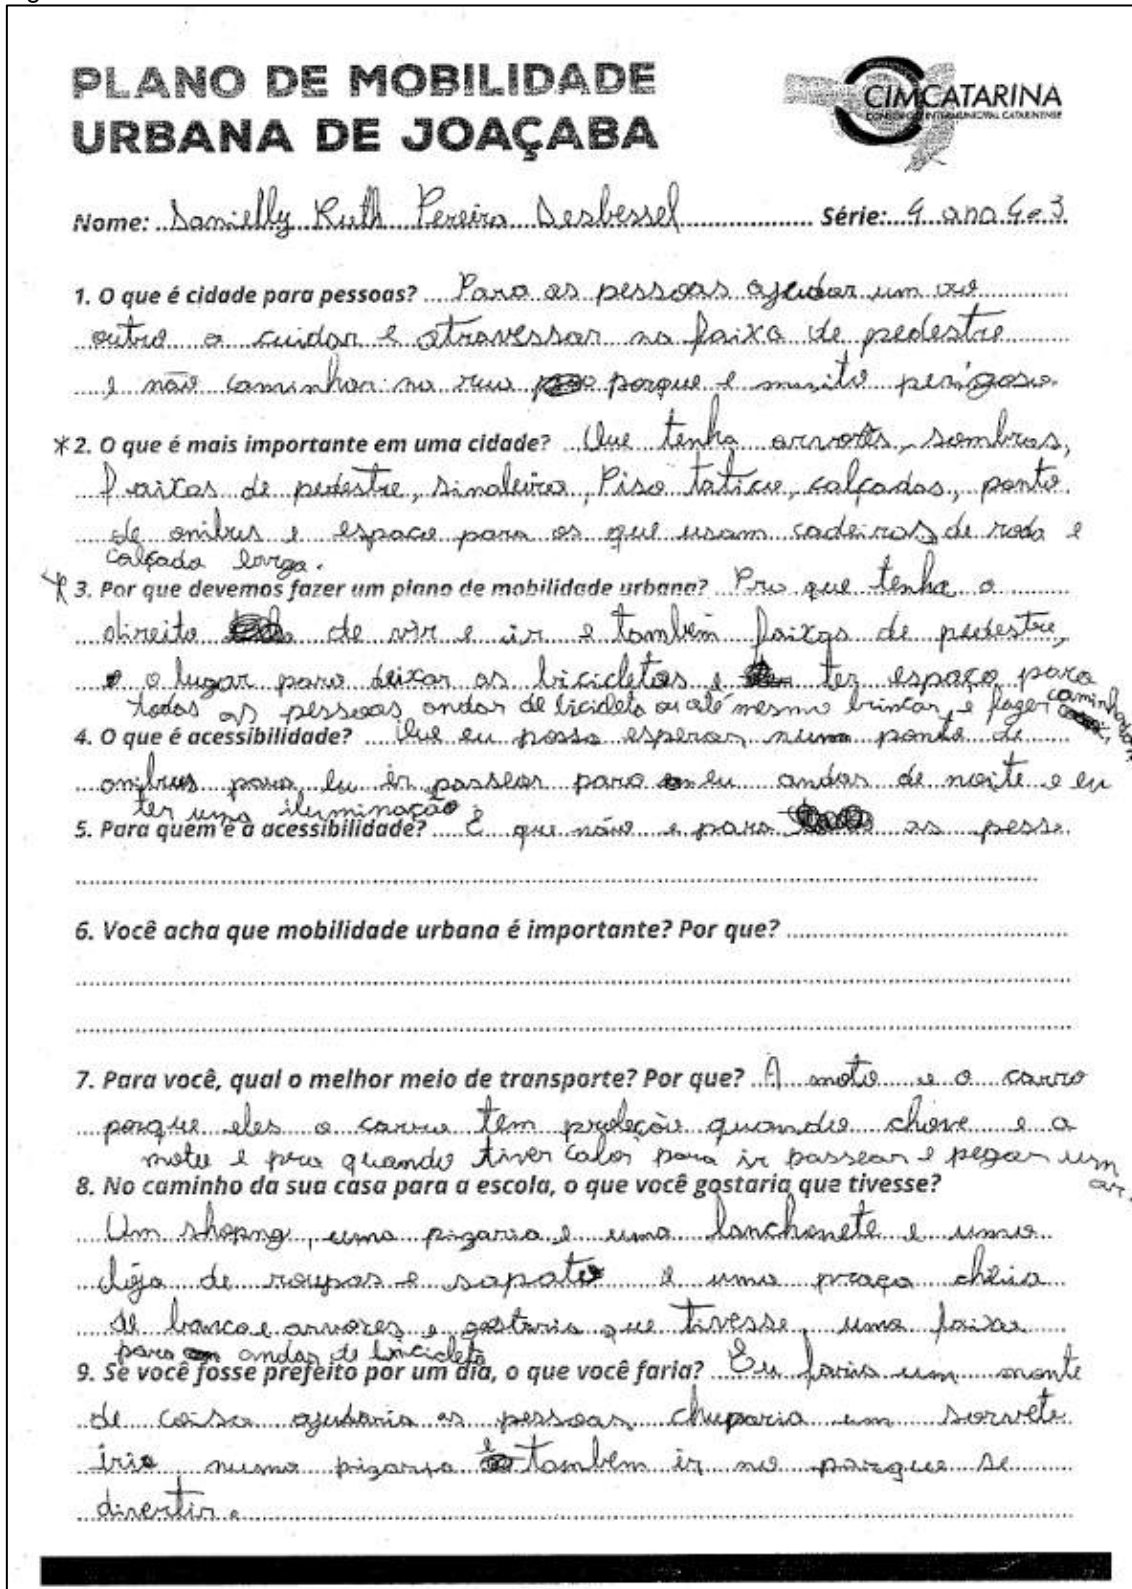 PLANO DE MOBILIDADE
URBANA DE JOAÇABA
CIMCATARINA
CONSÓRCIO INTERMUNICIPAL CATARINENSE
Nome: Danielly Ruth Pereira Desbessel Série: 4 ano 4-3
1. O que é cidade para pessoas? Para as pessoas ajudar um
outro a cuidar e atravessar na faixa de pedestre
e não caminhar na rua porque e muito perigoso.
*2. O que é mais importante em uma cidade? Que tenha arvores, sombras,
faixas de pedestre, sinaleira, Piso taticu, calçadas, ponto
de onibus e espaco para os que usam cadeiras de roda e
calçada larga.
* 3. Por que devemos fazer um plano de mobilidade urbana? Pro que tenha o
direito de vir e ir e também faixas de pedestre,
e o lugar para deixar as bicicletas e ter espaço para
todas as pessoas andar de bicicleta ou até mesmo brincar, e fazer caminhadas
4. O que é acessibilidade? Que eu possa esperar num ponto de
onibus para eu ir passear para eu andar de noite e eu
ter uma iluminação.
5. Para quem é a acessibilidade? É que não e para as pess.
6. Você acha que mobilidade urbana é importante? Por que?
7. Para você, qual o melhor meio de transporte? Por que? A moto e o carro
porque eles o carro tem proteção quando chove e a
moto e pra quando tiver calor para ir passear e pegar um
ar.
8. No caminho da sua casa para a escola, o que você gostaria que tivesse?
Um shopng, uma pizaria e uma lanchonete e uma
loja de roupas e sapato e uma praça cheia
de banco e arvores e gostaria que tivesse uma faixa
para andar de bicicleta
9. Se você fosse prefeito por um dia, o que você faria? Eu faria um monte
de coisa ajudaria as pessoas chuparia um sorvete
iria numa pizaria e também ir no parque se
divertir.